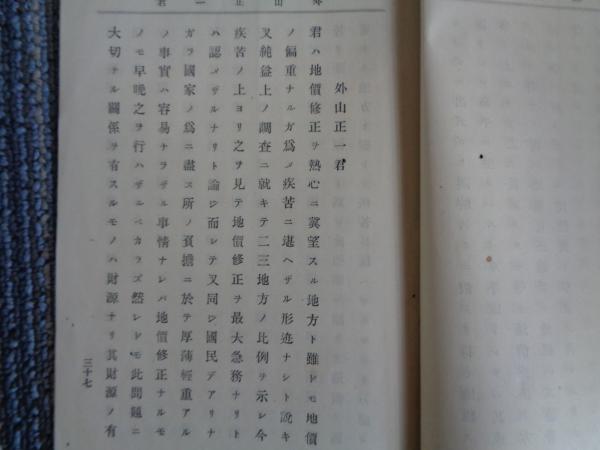 外山正一君
外山正一君
君ハ地價修正ヲ熱心ニ冀望スル地方ト雖ドモ地價
ノ偏重ナルガ爲メ疾苦ニ堪ヘザル形迹ナシト說キ
又純益上ノ調査ニ就キテ二三地方ノ比例ヲ示シ今
疾苦ノ上ヨリ之ヲ見テ地價修正ヲ最大急務ナリト
ハ認メザルナリト論ジ而シテ又同ジ國民デアリナ
ガラ國家ノ爲ニ盡ス所ノ負擔ニ於テ厚薄輕重アル
ノ事實ハ容易ナラザル事情ナレバ地價修正ナルモ
ノモ早晩之ヲ行ハザルベカラズ然レドモ此問題ニ
大切ナル關係ヲ有スルモノハ財源ナリ其財源ノ有
三十七